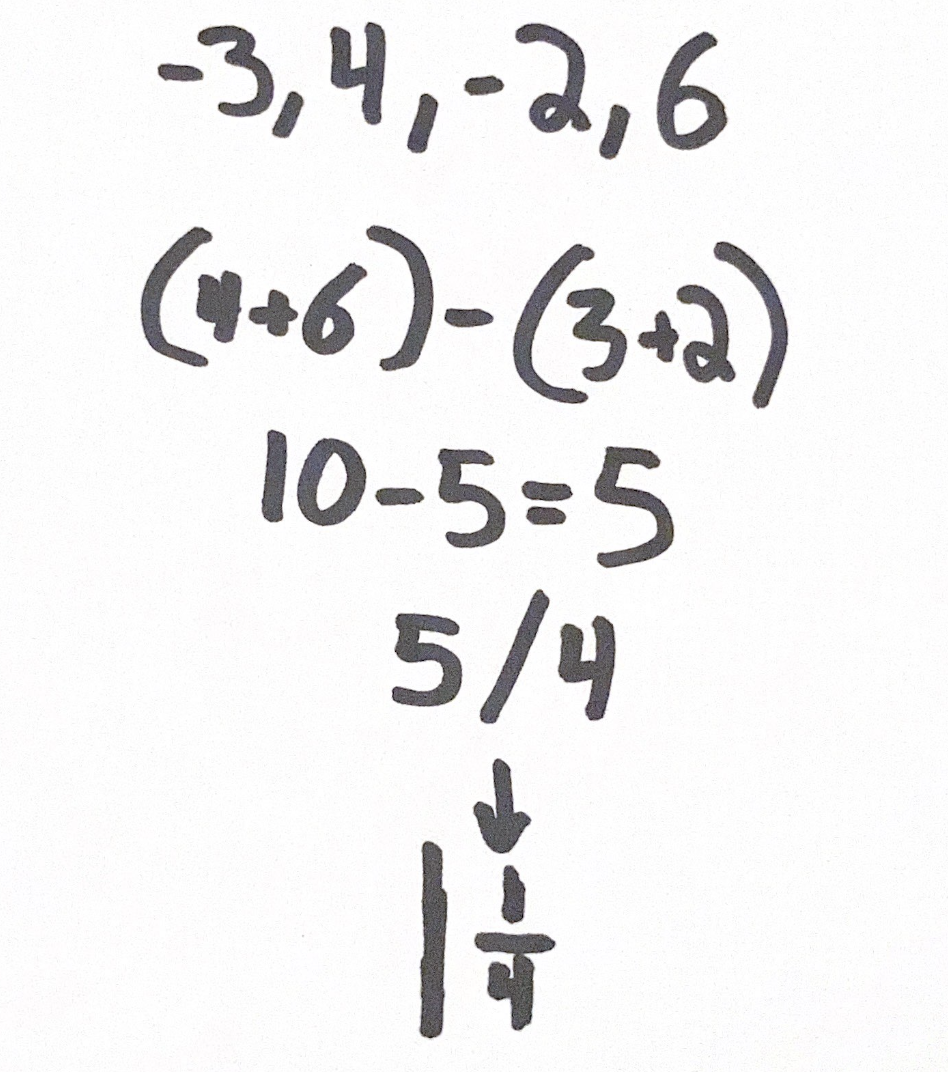 -3, 4, -2, 6
(4+6)-(3+2)
10-5=5
5/4
↓
1 1/4